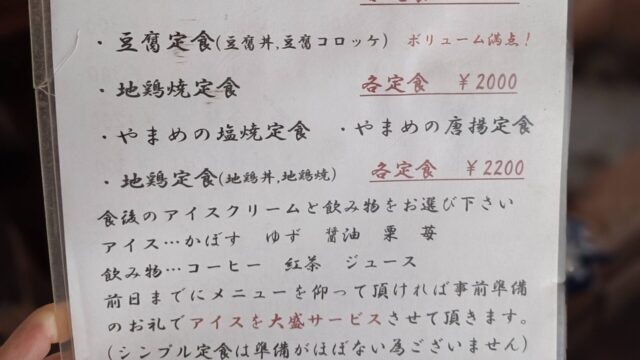 ・豆腐定食(豆腐丼,豆腐コロッケ) ボリューム満点!
・地鶏焼定食 各定食 ￥2000
・やまめの塩焼定食 ・やまめの唐揚定食
・地鶏定食(地鶏丼,地鶏焼) 各定食 ￥2200
食後のアイスクリームと飲み物をお選び下さい
アイス…かぼす ゆず 醤油 栗 苺
飲み物…コーヒー 紅茶 ジュース
前日までにメニューを仰って頂ければ事前準備
のお礼でアイスを大盛サービスさせて頂きます。
(シンプル定食は準備がほぼない為ございません)